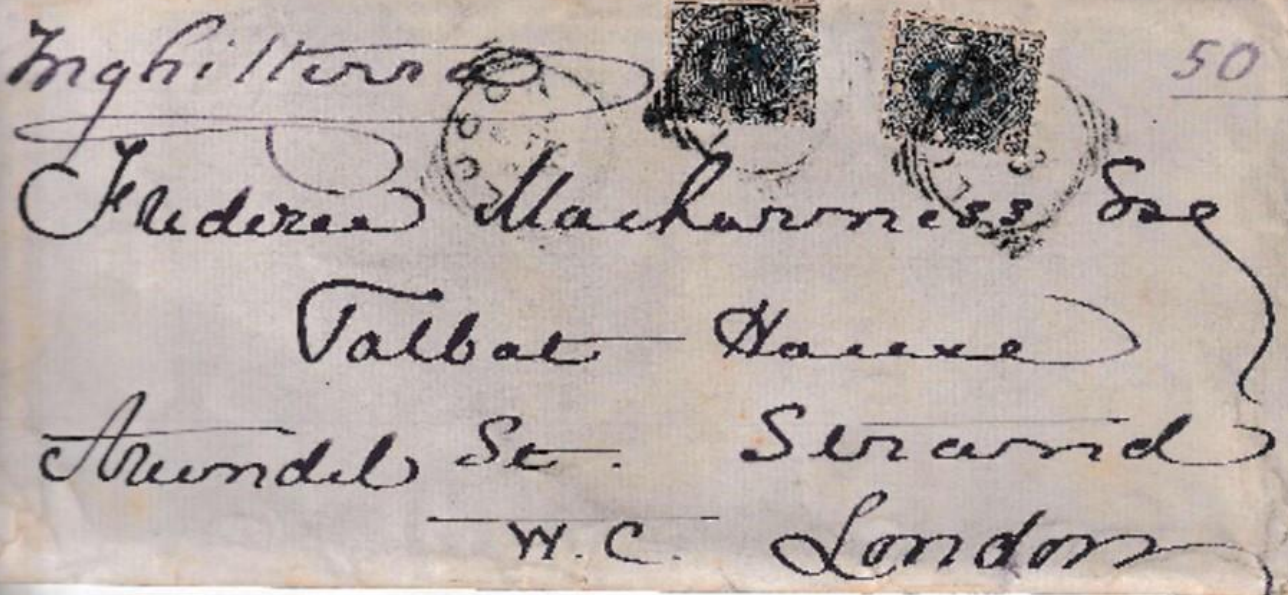 Inghilterra 50
Frederic Mackarness Esq
Talbot House
Arundel St. Strand
W.C. London